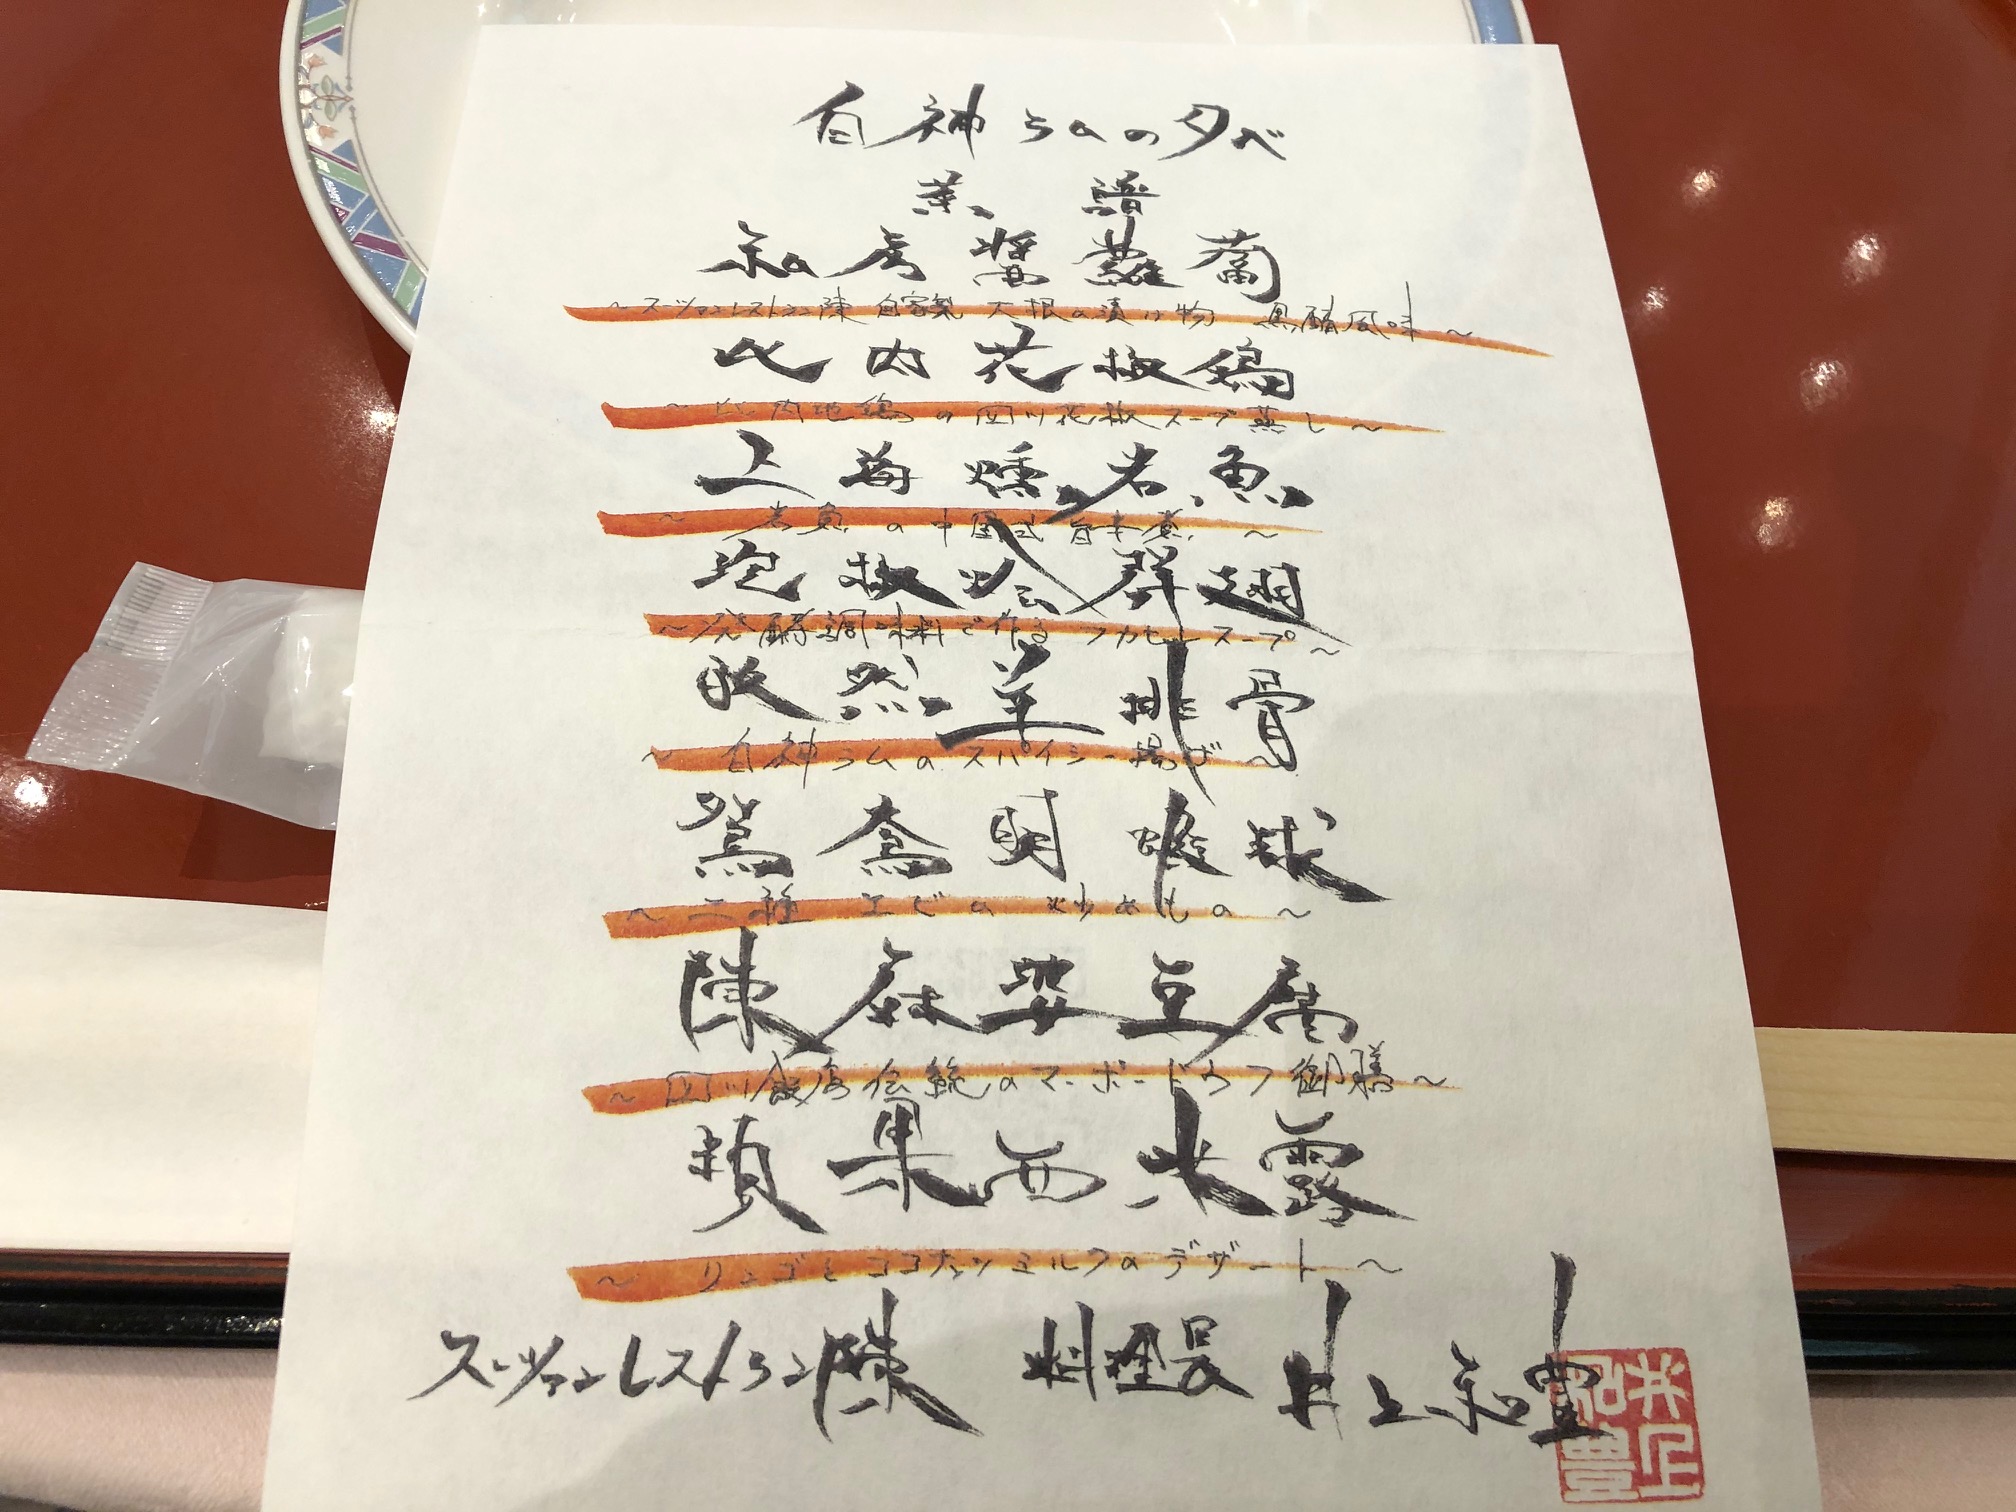 白神ラムの夕べ
菜 譜
私房醤蘿蔔
～スーツァンレストラン陳 自家製 大根の漬け物 黒酢風味～
比内花椒鶏
～比内地鶏の四川花椒スープ蒸し～
上海燻岩魚
～岩魚の中国式甘辛煮～
泡椒烩群翅
～発酵調味料で作るフカヒレスープ～
孜然羊排骨
～白神ラムのスパイシー揚げ～
鴛鴦明蝦球
～二種エビの炒めもの～
陳麻婆豆腐
～四川飯店伝統のマーボードウフ御膳～
蘋果西米露
～リンゴとココナッツミルクのデザート～
スーツァンレストラン陳 料理長 井上和豊
井上
和豊